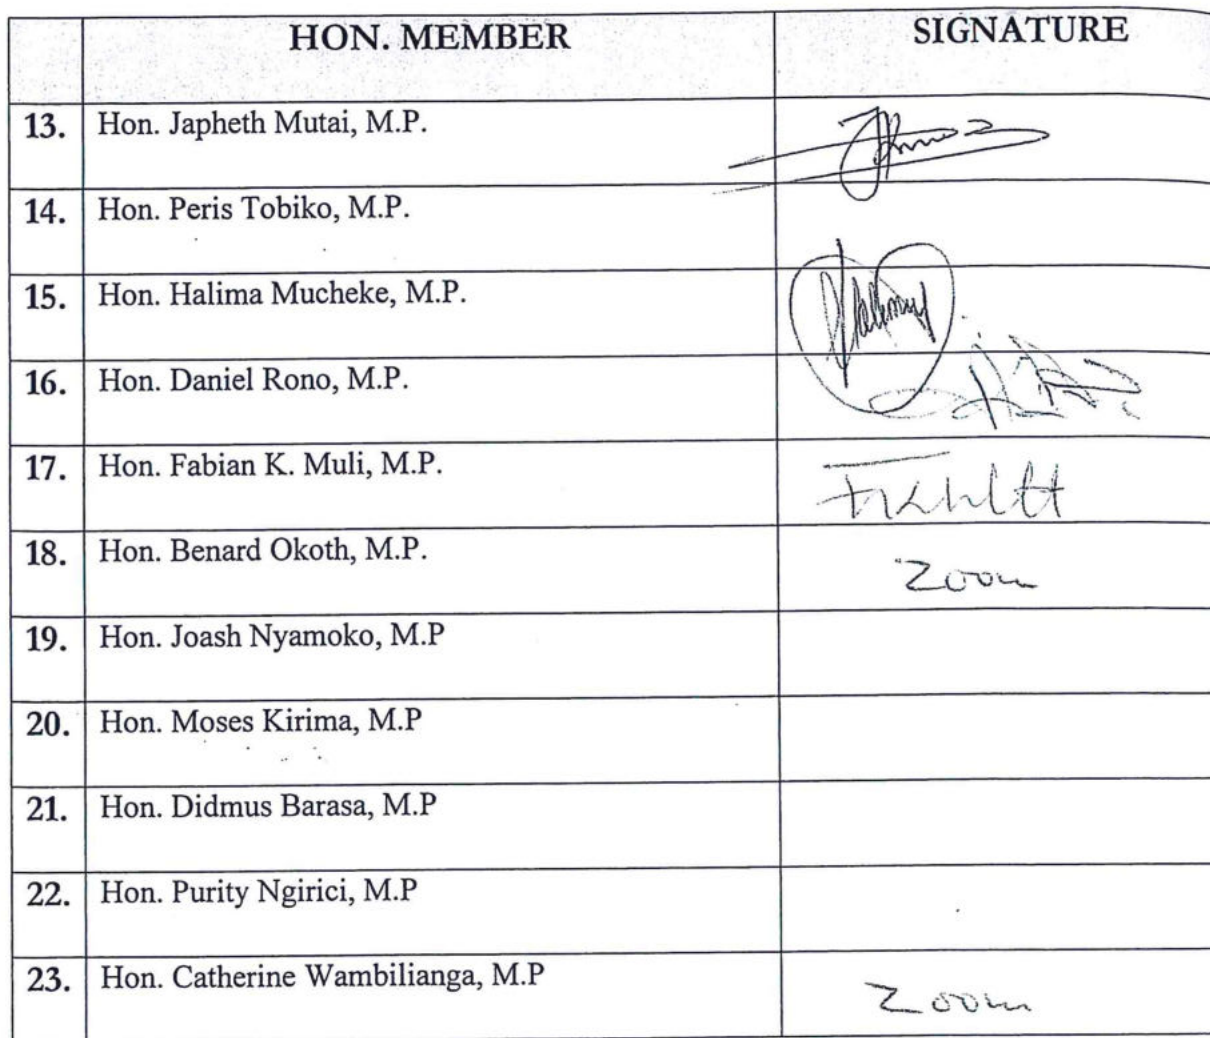 HON. MEMBER SIGNATURE
13. Hon. Japheth Mutai, M.P.
14. Hon. Peris Tobiko, M.P.
15. Hon. Halima Mucheke, M.P.
16. Hon. Daniel Rono, M.P.
17. Hon. Fabian K. Muli, M.P.
18. Hon. Benard Okoth, M.P. Zoom
19. Hon. Joash Nyamoko, M.P
20. Hon. Moses Kirima, M.P
21. Hon. Didmus Barasa, M.P
22. Hon. Purity Ngirici, M.P
23. Hon. Catherine Wambilianga, M.P Zoom